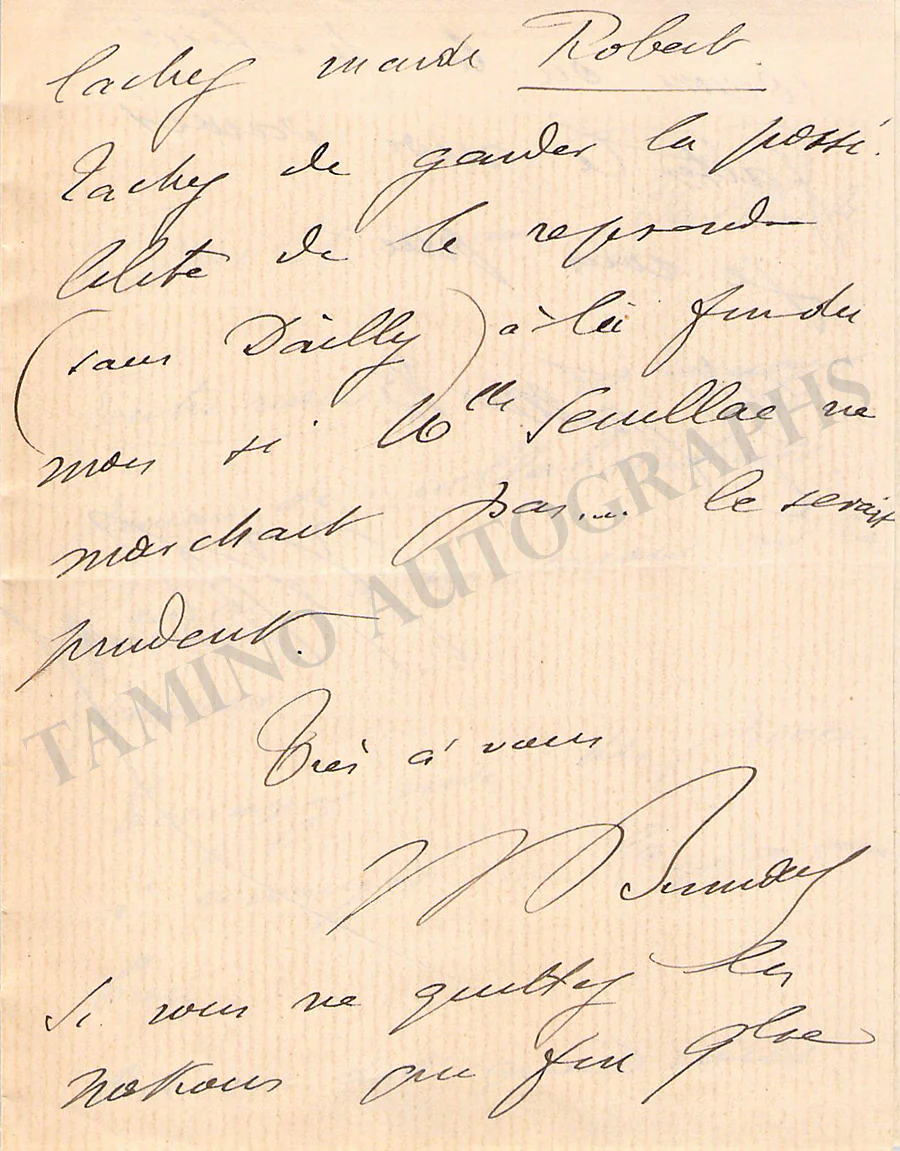 lachez maide Robert
Tachez de garder la possi.
bilité de le reprendre
(sans Dailly) à la fin du
mois si Mlle Seuillac ne
marchait pas... Ce serait
prudent.
Très à vous
Si vous ne quittez les
que fin
TAMINO AUTOGRAPHS